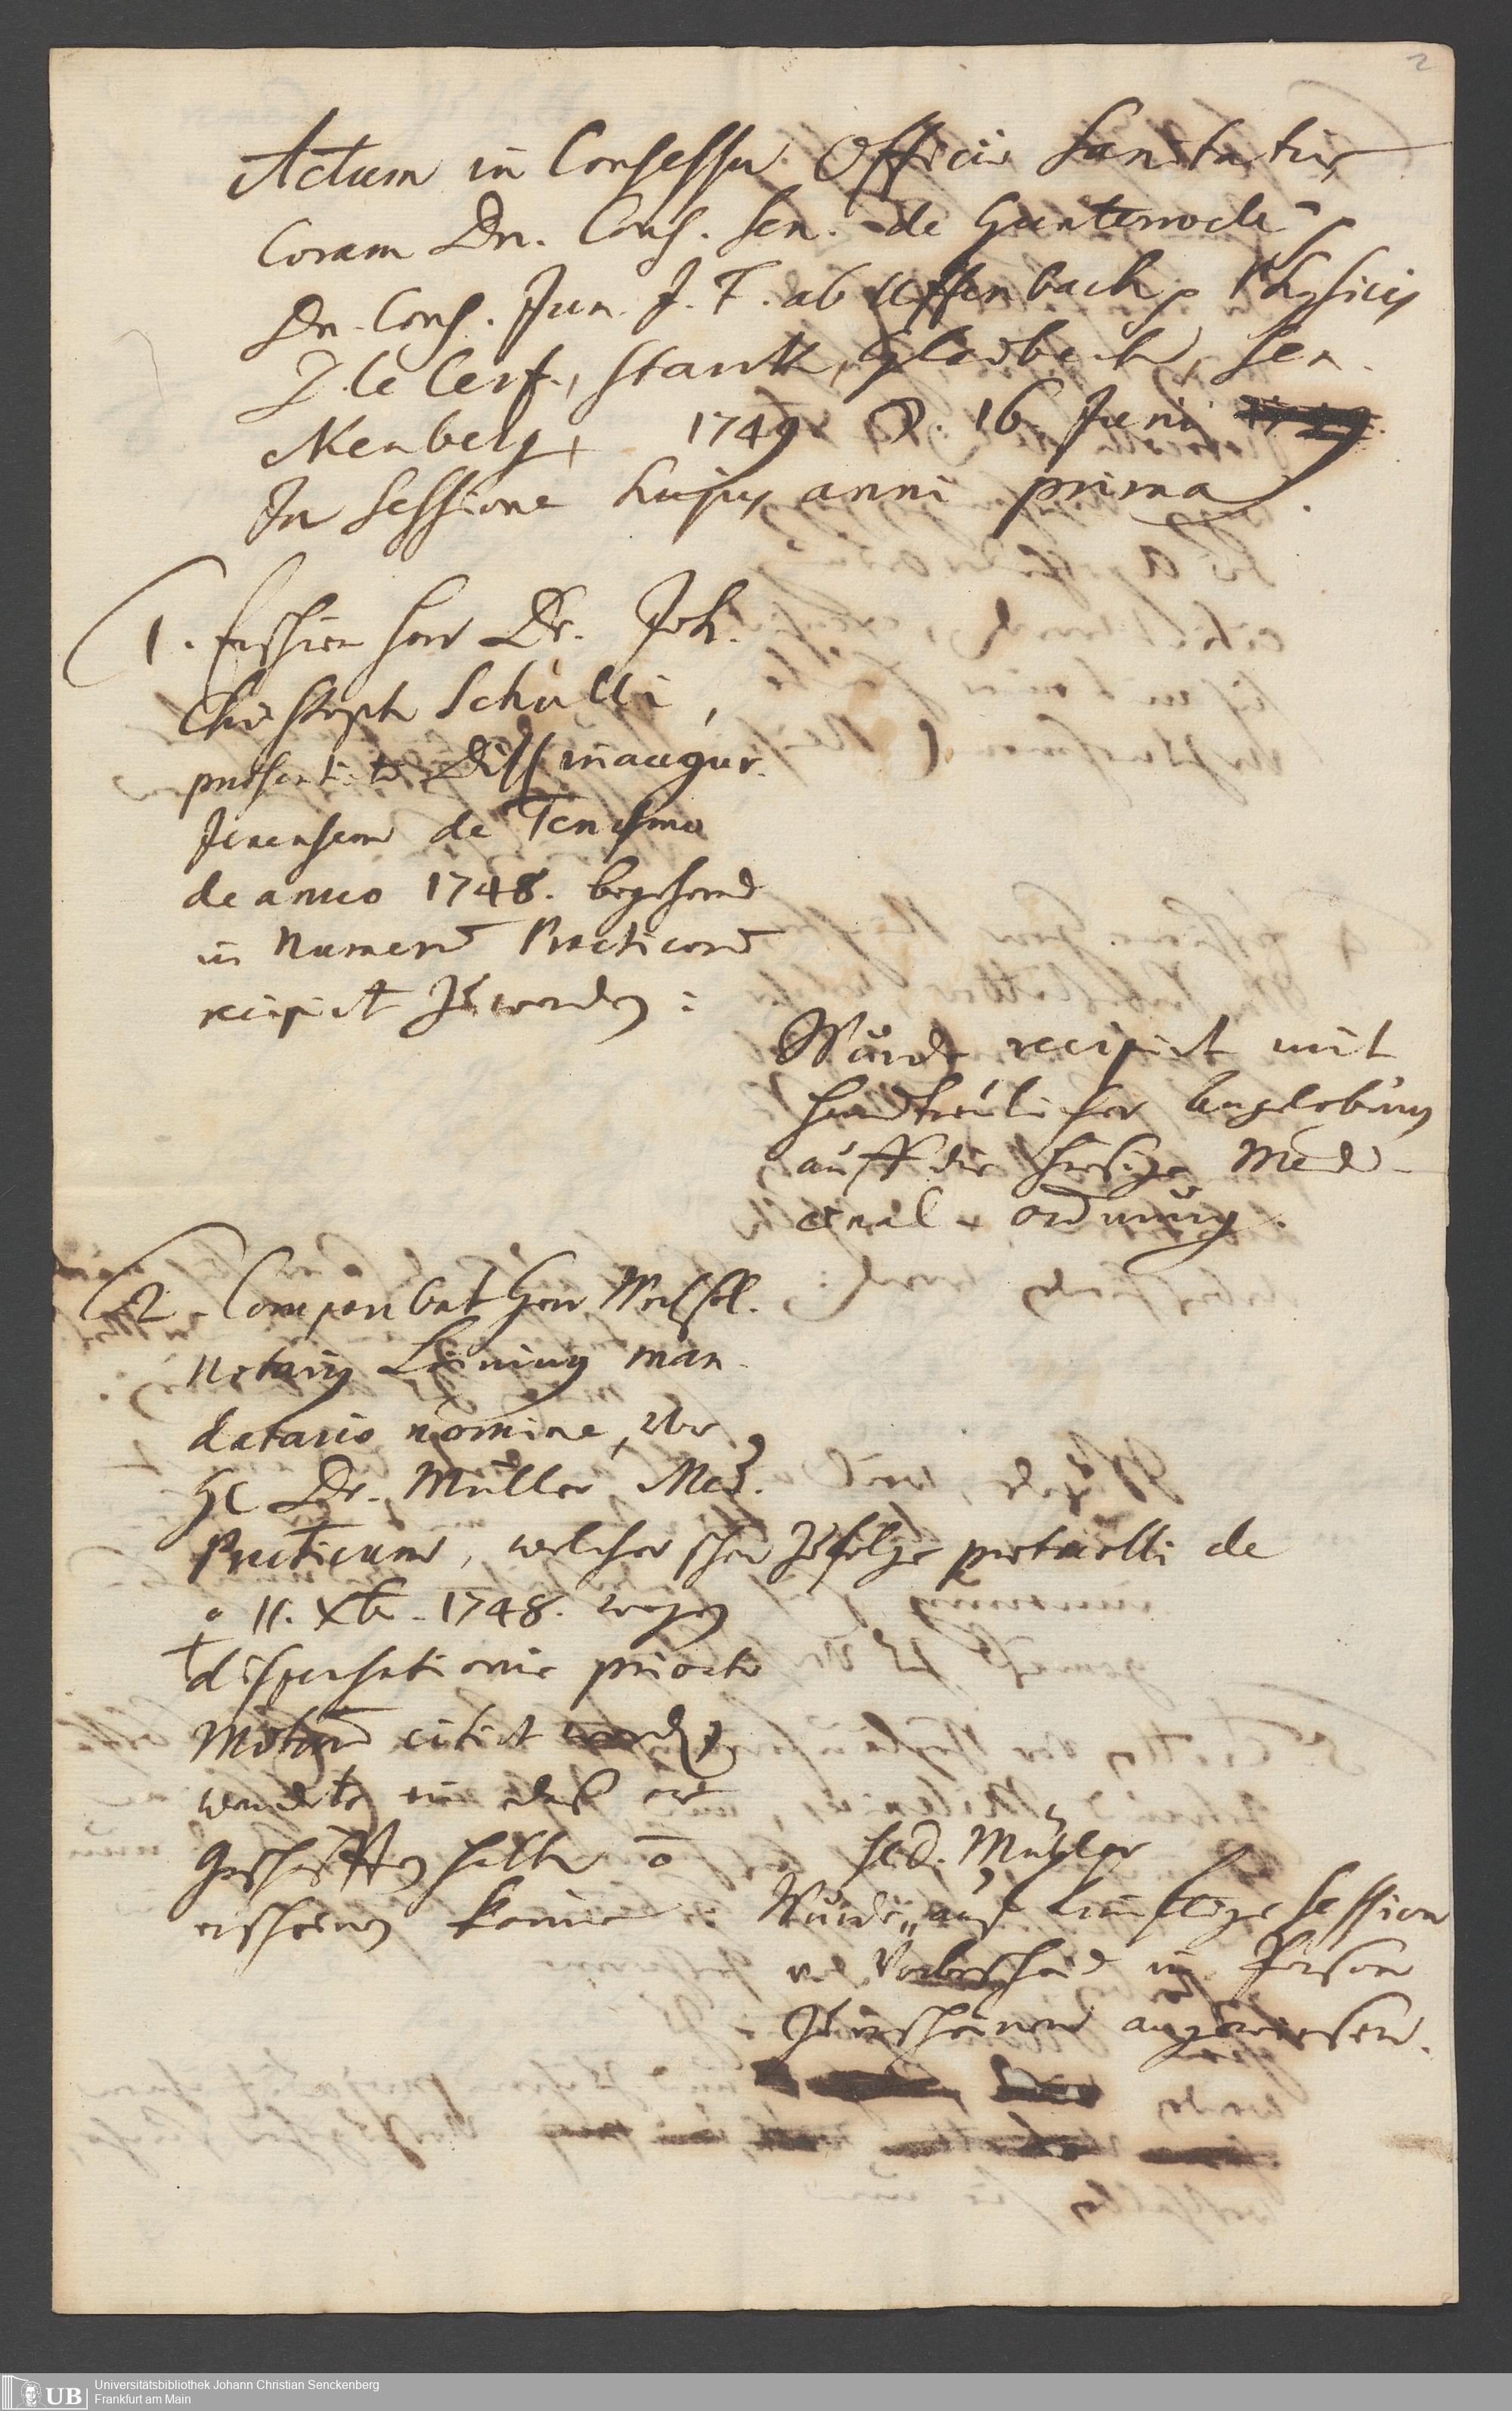 2
Actum in Consessu Officii Sanitatis
Coram Dn. Cons. Sen. de Günterrode
Dn. Cons. Jun. J. F. ab Uffenbach, Physicis
J. le Cerf, Starck, Gladbach, Sen
ckenberg 1749 D. 16. Junii
In Sessione hujus anni prima.
1. Erschien Herr Dr. Joh.
Christoph Schulli,
präsentirte Diss. inaugur.
Jenensem de Tenesmo
de anno 1748. begehrend
in Numerum Practicorum
recipirt zu werden:
Wurde recipirt mit
handtreulicher Angelobung
auff die hiesige Medi
cinal ordnung.
2. Comparebat Herr Wechsel.
Notarius Leining man
datario nomine, vor
H. Dr. Müller Med.
Practicum, welcher schon zufolge protocolli de
11. Xbr. 1748. wegen
dispensationis
citirt
wendete ein daß er
Geschäfften halber
erscheinen könne
H. D. Müller
Wurde auf künftige Session
in Person
zu erscheinen angewiesen.
UB
Universitätsbibliothek Johann Christian Senckenberg
Frankfurt am Main